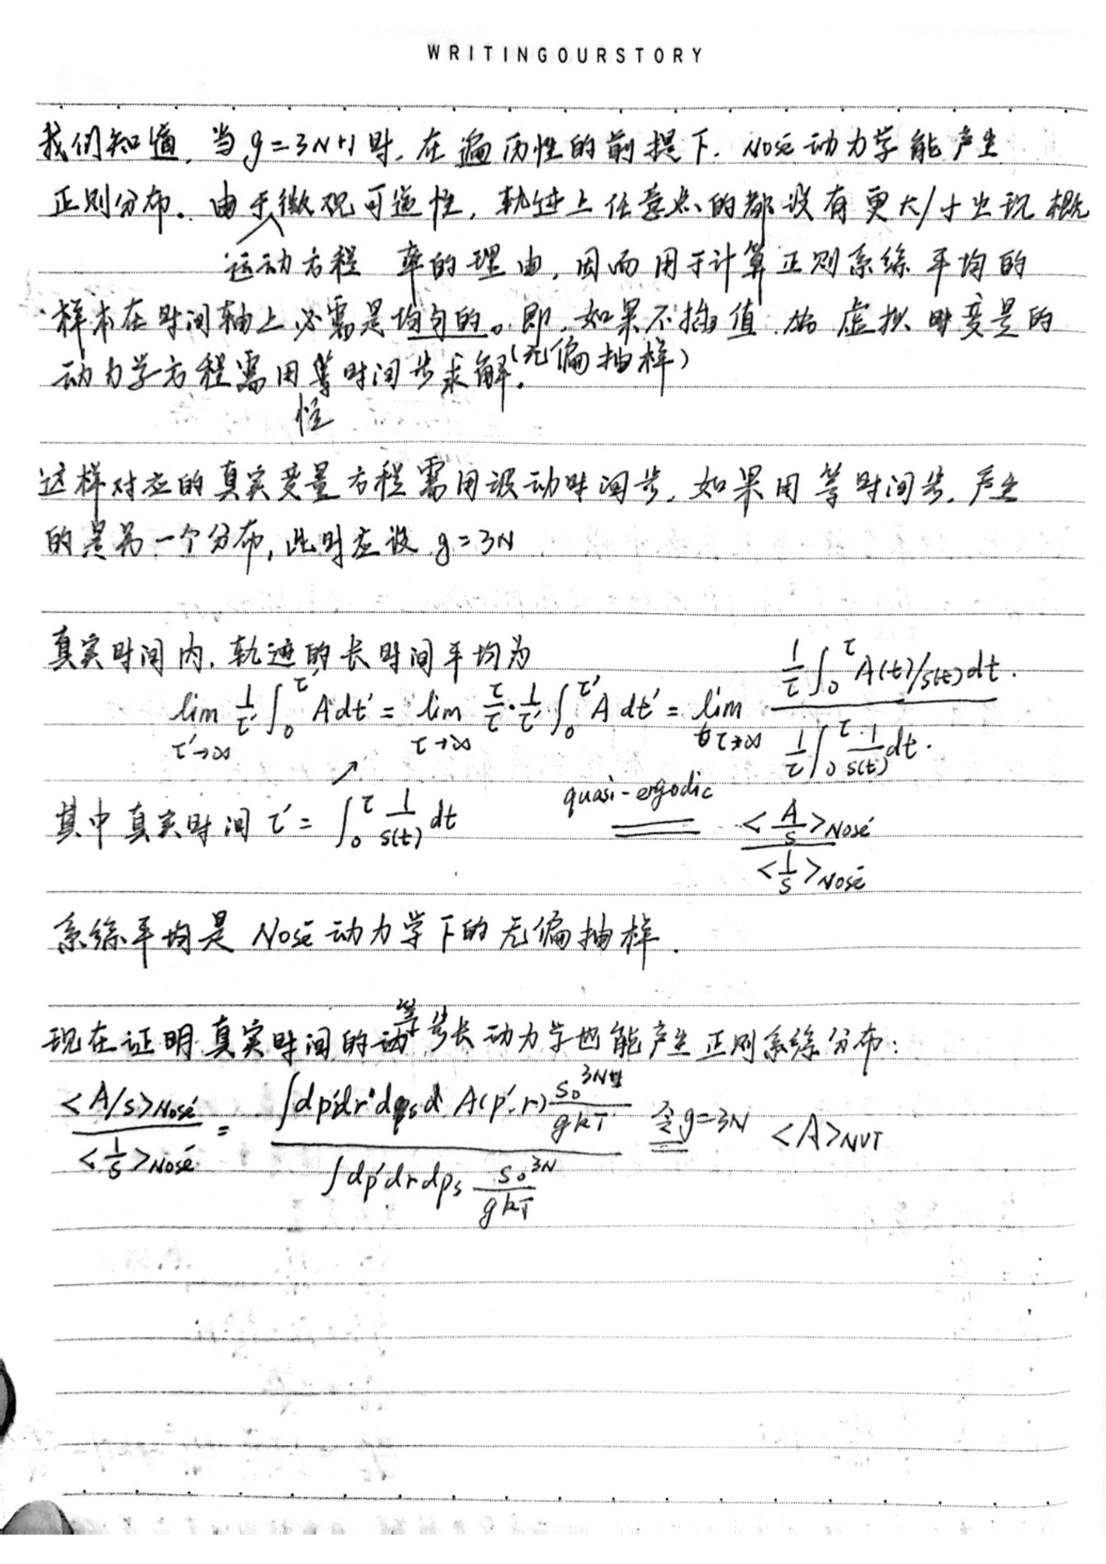 WRITINGOURSTORY
我们知道,当g=3N+1时,在遍历性的前提下,Nosé动力学能产生
正则分布。由于微观可逆性,轨迹上任意点的都没有更大/小出现概
运动方程 率的理由,因而用于计算正则系综平均的
样本在时间轴上必需是均匀的。即,如果不插值,虚拟时变量的
动力学方程需用等时间步求解(无偏抽样)
恒
这样对应的真实变量方程需用波动时间步,如果用等时间步,产生
的是另一个分布,此时应设 g=3N
真实时间内,轨迹的长时间平均为
lim τ'→∞ 1/τ' ∫₀^τ' A dt' = lim τ→∞ τ/τ' · 1/τ ∫₀^τ' A dt' = lim τ→∞ (1/τ ∫₀^τ A(t)/s(t) dt) / (1/τ ∫₀^τ 1/s(t) dt)
其中真实时间 τ' = ∫₀^τ 1/s(t) dt quasi-ergodic == <A/s>Nosé / <1/s>Nosé
系综平均是 Nosé 动力学下的无偏抽样.
现在证明真实时间的等步长动力学也能产生正则系综分布:
<A/s>Nosé / <1/s>Nosé = ∫dp'dr'dps A(p',r) s₀^3N/gkT / ∫dp'drdps s₀^3N/gkT 令g=3N <A>NVT